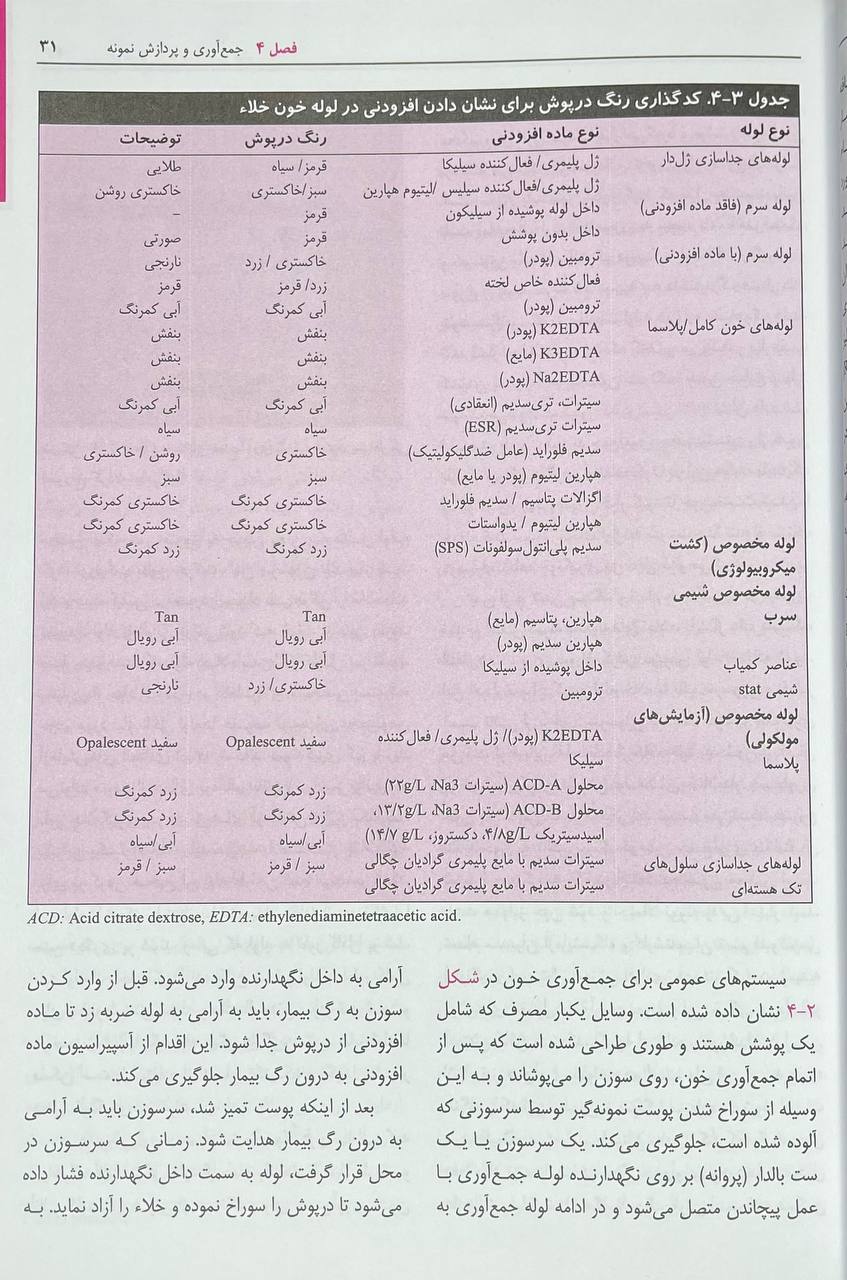 فصل ۴ جمع‌آوری و پردازش نمونه ۳۱
جدول ۳-۴. کدگذاری رنگ درپوش برای نشان دادن افزودنی در لوله خون خلاء
نوع لوله نوع ماده افزودنی رنگ درپوش توضیحات
لوله‌های جداسازی ژل‌دار ژل پلیمری/ فعال‌کننده سیلیکا قرمز/ سیاه طلایی
ژل پلیمری/فعال‌کننده سیلیس /لیتیوم هپارین سبز/خاکستری خاکستری روشن
لوله سرم (فاقد ماده افزودنی) داخل لوله پوشیده از سیلیکون قرمز –
داخل بدون پوشش قرمز صورتی
لوله سرم (با ماده افزودنی) ترومبین (پودر) خاکستری / زرد نارنجی
فعال‌کننده خاص لخته زرد/ قرمز قرمز
ترومبین (پودر) آبی کمرنگ آبی کمرنگ
لوله‌های خون کامل/پلاسما K2EDTA (پودر) بنفش بنفش
K3EDTA (مایع) بنفش بنفش
Na2EDTA (پودر) بنفش بنفش
سیترات، تری‌سدیم (انعقادی) آبی کمرنگ آبی کمرنگ
سیترات تری‌سدیم (ESR) سیاه سیاه
سدیم فلوراید (عامل ضدگلیکولیتیک) خاکستری روشن / خاکستری
هپارین لیتیوم (پودر یا مایع) سبز سبز
اگزالات پتاسیم / سدیم فلوراید خاکستری کمرنگ خاکستری کمرنگ
هپارین لیتیوم / یدواستات خاکستری کمرنگ خاکستری کمرنگ
لوله مخصوص (کشت سدیم پلی‌انتول‌سولفونات (SPS) زرد کمرنگ زرد کمرنگ
میکروبیولوژی)
لوله مخصوص شیمی
سرب هپارین، پتاسیم (مایع) Tan Tan
هپارین سدیم (پودر) آبی رویال آبی رویال
عناصر کمیاب داخل پوشیده از سیلیکا آبی رویال آبی رویال
شیمی stat ترومبین خاکستری/ زرد نارنجی
لوله مخصوص (آزمایش‌های
مولکولی) K2EDTA (پودر)/ ژل پلیمری/ فعال‌کننده سفید Opalescent سفید Opalescent
پلاسما سیلیکا
محلول ACD-A (سیترات Na3، ۲۲g/L) زرد کمرنگ زرد کمرنگ
محلول ACD-B (سیترات Na3، ۱۳/۲g/L، زرد کمرنگ زرد کمرنگ
اسیدسیتریک ۴/۸g/L، دکستروز، ۱۴/۷ g/L) آبی/سیاه آبی/سیاه
لوله‌های جداسازی سلول‌های سیترات سدیم با مایع پلیمری گرادیان چگالی سبز / قرمز سبز / قرمز
تک هسته‌ای سیترات سدیم با مایع پلیمری گرادیان چگالی
ACD: Acid citrate dextrose, EDTA: ethylenediaminetetraacetic acid.
سیستم‌های عمومی برای جمع‌آوری خون در شکل
۴-۲ نشان داده شده است. وسایل یکبار مصرف که شامل
یک پوشش هستند و طوری طراحی شده است که پس از
اتمام جمع‌آوری خون، روی سوزن را می‌پوشاند و به این
وسیله از سوراخ شدن پوست نمونه‌گیر توسط سرسوزنی که
آلوده شده است، جلوگیری می‌کند. یک سرسوزن یا یک
ست بالدار (پروانه) بر روی نگهدارنده لوله جمع‌آوری با
عمل پیچاندن متصل می‌شود و در ادامه لوله جمع‌آوری به
آرامی به داخل نگهدارنده وارد می‌شود. قبل از وارد کردن
سوزن به رگ بیمار، باید به آرامی به لوله ضربه زد تا ماده
افزودنی از درپوش جدا شود. این اقدام از آسپیراسیون ماده
افزودنی به درون رگ بیمار جلوگیری می‌کند.
بعد از اینکه پوست تمیز شد، سرسوزن باید به آرامی
به درون رگ بیمار هدایت شود. زمانی که سرسوزن در
محل قرار گرفت، لوله به سمت داخل نگهدارنده فشار داده
می‌شود تا درپوش را سوراخ نموده و خلاء را آزاد نماید. به